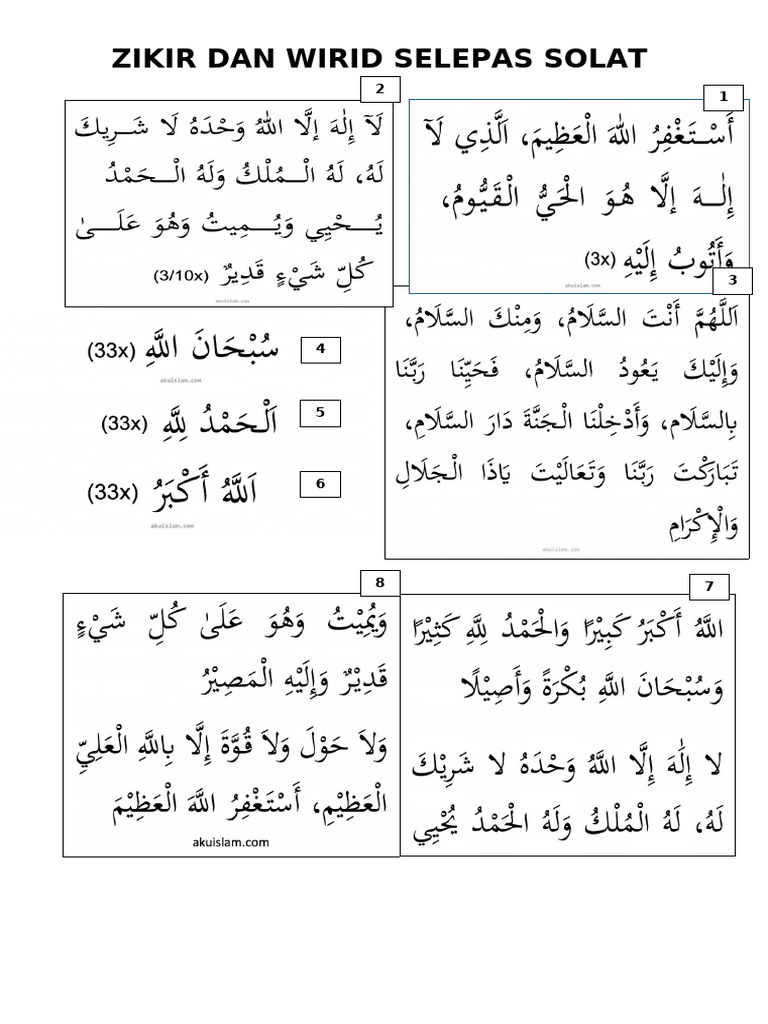 ZIKIR DAN WIRID SELEPAS SOLAT
1
أَسْتَغْفِرُ اللهَ الْعَظِيمَ، اَلَّذِي لَآ
إِلٰـــهَ إِلَّا هُوَ الْحَيُّ الْقَيُّومُ،
وَأَتُوبُ إِلَيْهِ (3x)
akuislam.com
2
لَآ إِلٰهَ إِلَّا اللهُ وَحْدَهُ لَا شَـــرِيكَ
لَهُ، لَهُ الْـــمُلْكُ وَلَهُ الْـــحَمْدُ
يُـــحْيِي وَيُـــمِيتُ وَهُوَ عَلَـــىٰ
كُلِّ شَيْءٍ قَدِيرٌ (3/10x)
akuislam.com
3
اَللَّهُمَّ أَنْتَ السَّلَامُ، وَمِنْكَ السَّلَامُ،
وَإِلَيْكَ يَعُودُ السَّلَامُ، فَحَيِّنَا رَبَّنَا
بِالسَّلَام، وَأَدْخِلْنَا الْـجَنَّةَ دَارَ السَّلَامِ،
تَبَارَكْتَ رَبَّنَا وَتَعَالَيْتَ يَاذَا الْـجَلَالِ
وَالْإِكْرَامِ
akuislam.com
4
سُبْحَانَ اللَّهِ (33x)
akuislam.com
5
اَلْـحَمْدُ لِلَّهِ (33x)
6
اَللَّهُ أَكْبَرُ (33x)
akuislam.com
7
اللَّهُ أَكْبَرُ كَبِيْرًا وَالْحَمْدُ لِلَّهِ كَثِيْرًا
وَسُبْحَانَ اللَّهِ بُكْرَةً وَأَصِيْلًا
لا إِلَٰهَ إِلَّا اللَّهُ وَحْدَهُ لا شَرِيْكَ
لَهُ، لَهُ الْمُلْكُ وَلَهُ الْحَمْدُ يُحْيِي
8
وَيُمِيْتُ وَهُوَ عَلَىٰ كُلِّ شَيْءٍ
قَدِيْرٌ وَإِلَيْهِ الْمَصِيْرُ
وَلاَ حَوْلَ وَلاَ قُوَّةَ إِلَّا بِاللَّهِ الْعَلِيِّ
الْعَظِيْمِ، أَسْتَغْفِرُ اللَّهَ الْعَظِيْمَ
akuislam.com